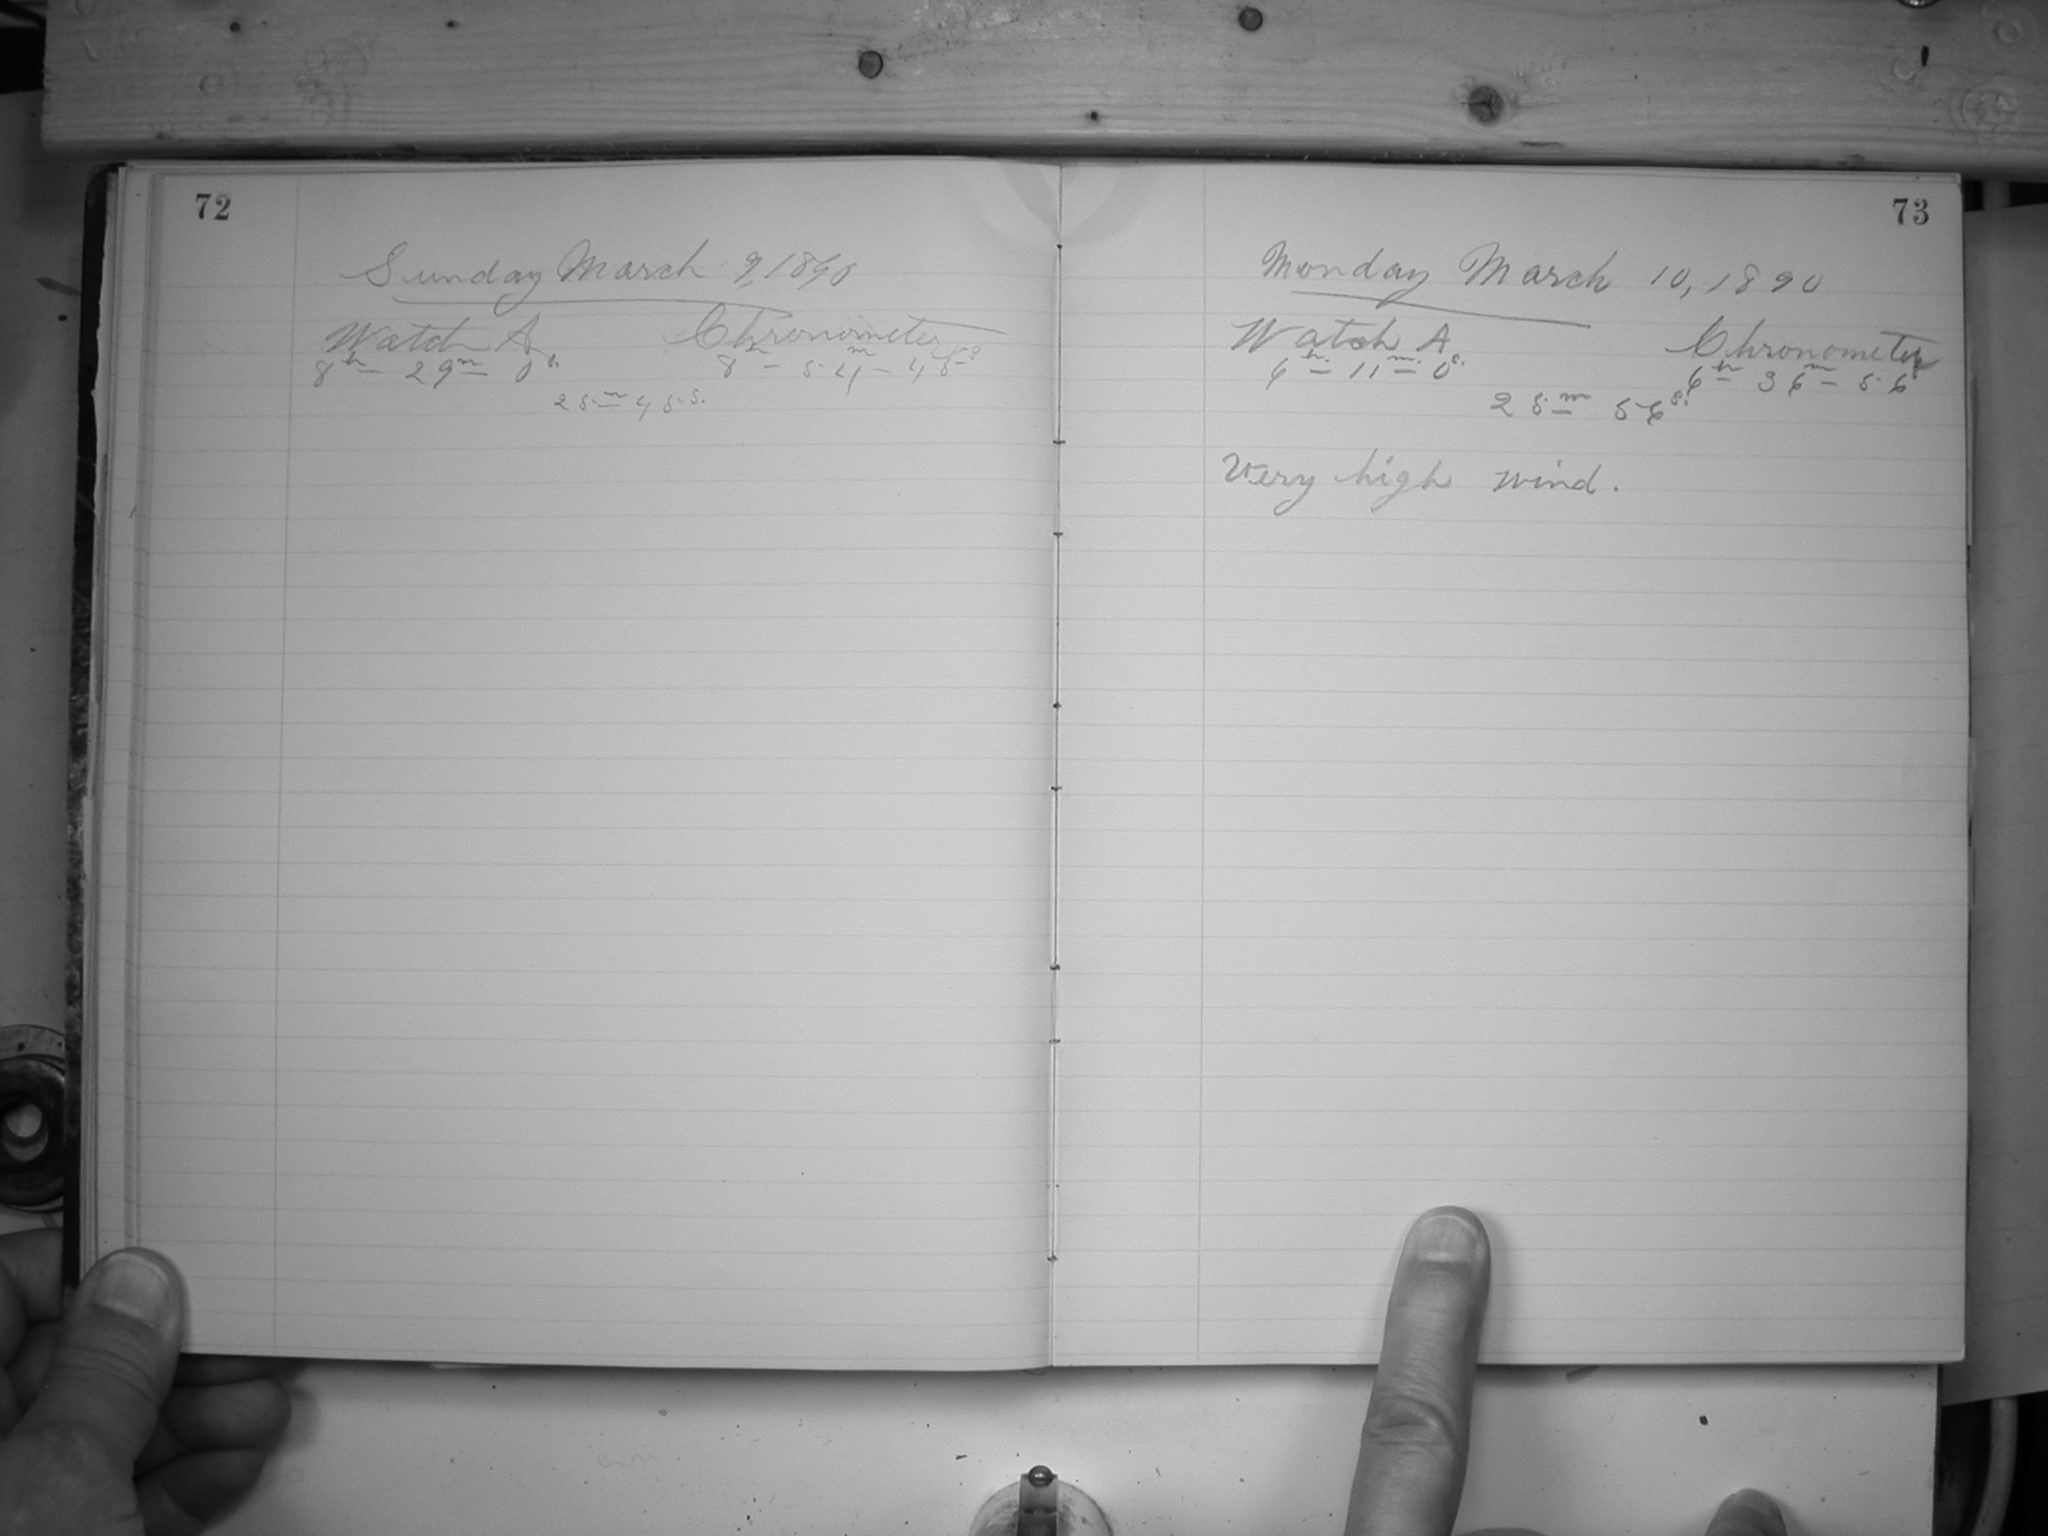 72
Sunday March 9, 1890
Watch A Chronometer
8h — 29m — 0s. 8h — 54m — 45s
25m 45s.
73
Monday March 10, 1890
Watch A Chronometer
6h. — 11m. — 0s. 6h 36m — 56
25m 56s.
Very high wind.